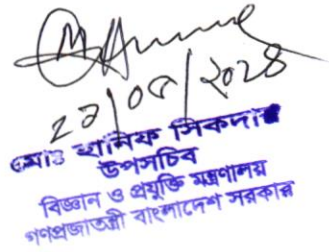 ২১/০৫/২০২৪
মোঃ হানিফ সিকদার
উপসচিব
বিজ্ঞান ও প্রযুক্তি মন্ত্রণালয়
গণপ্রজাতন্ত্রী বাংলাদেশ সরকার